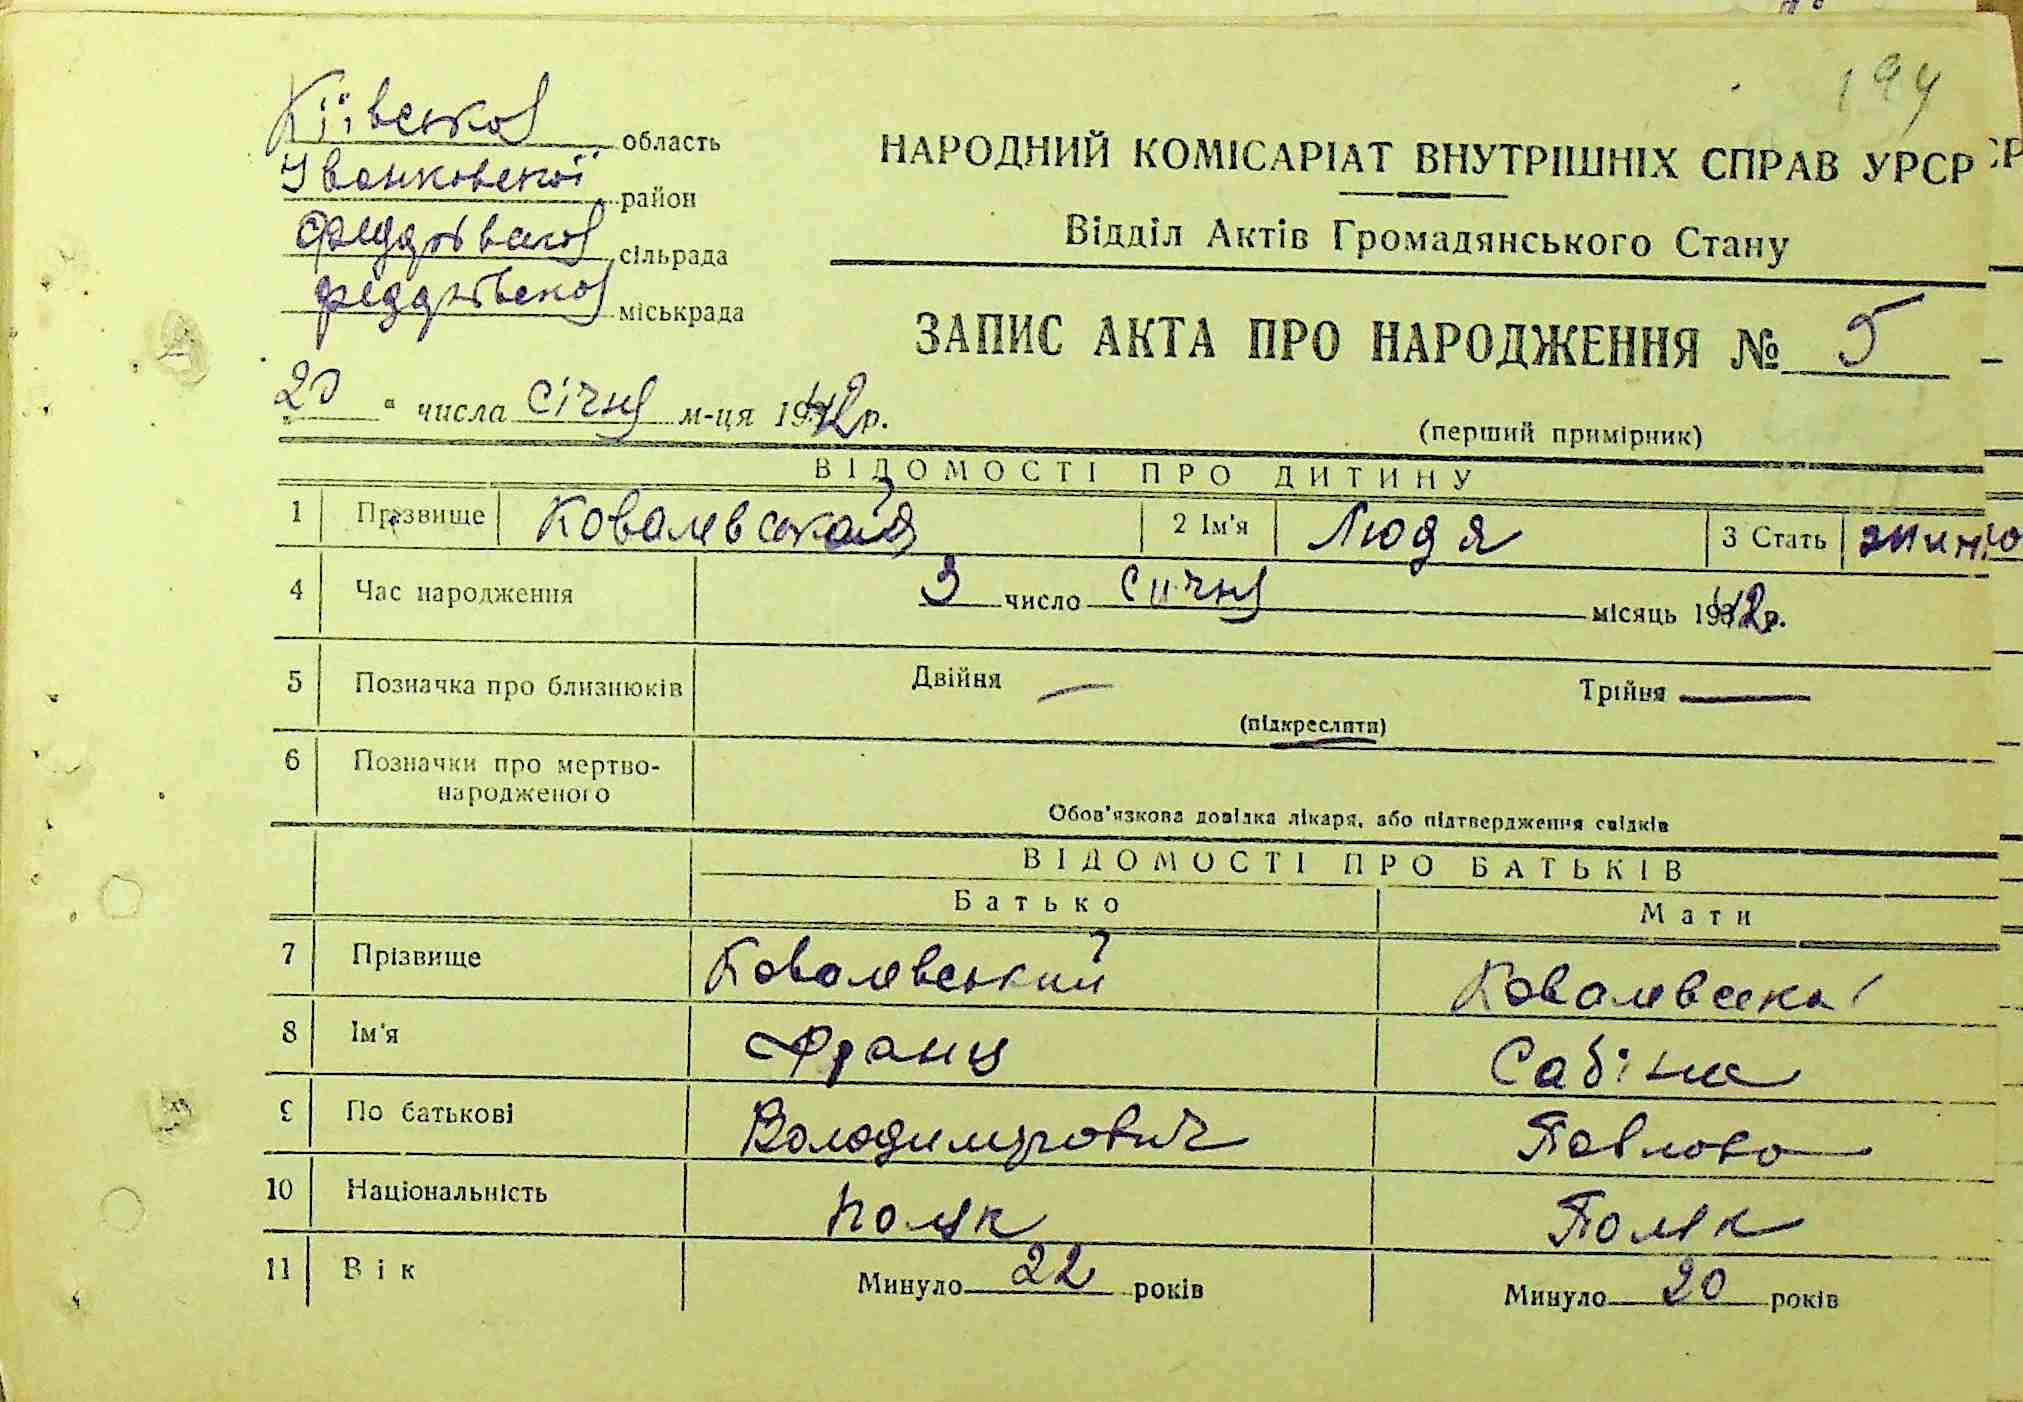 194
Київської область
НАРОДНИЙ КОМІСАРІАТ ВНУТРІШНІХ СПРАВ УРСР
Іванковскої район
Відділ Актів Громадянського Стану
сільрада
міськрада
ЗАПИС АКТА ПРО НАРОДЖЕННЯ № 5
„20“ числа січня м-ця 1942 р.
(перший примірник)
ВІДОМОСТІ ПРО ДИТИНУ
1 Прізвище Ковалевская 2 Ім'я Людя 3 Стать
4 Час народження 3 число Сичня місяць 1942 р.
5 Позначка про близнюків Двійня — Трійня —
(підкреслити)
6 Позначки про мертво-
народженого
Обов'язкова довідка лікаря, або підтвердження свідків
ВІДОМОСТІ ПРО БАТЬКІВ
Батько Мати
7 Прізвище Ковалевський Ковалевська
8 Ім'я Франц Сабіна
9 По батькові Володимирович Павлова
10 Національність поляк Поляк
11 Вік Минуло 22 років Минуло 20 років